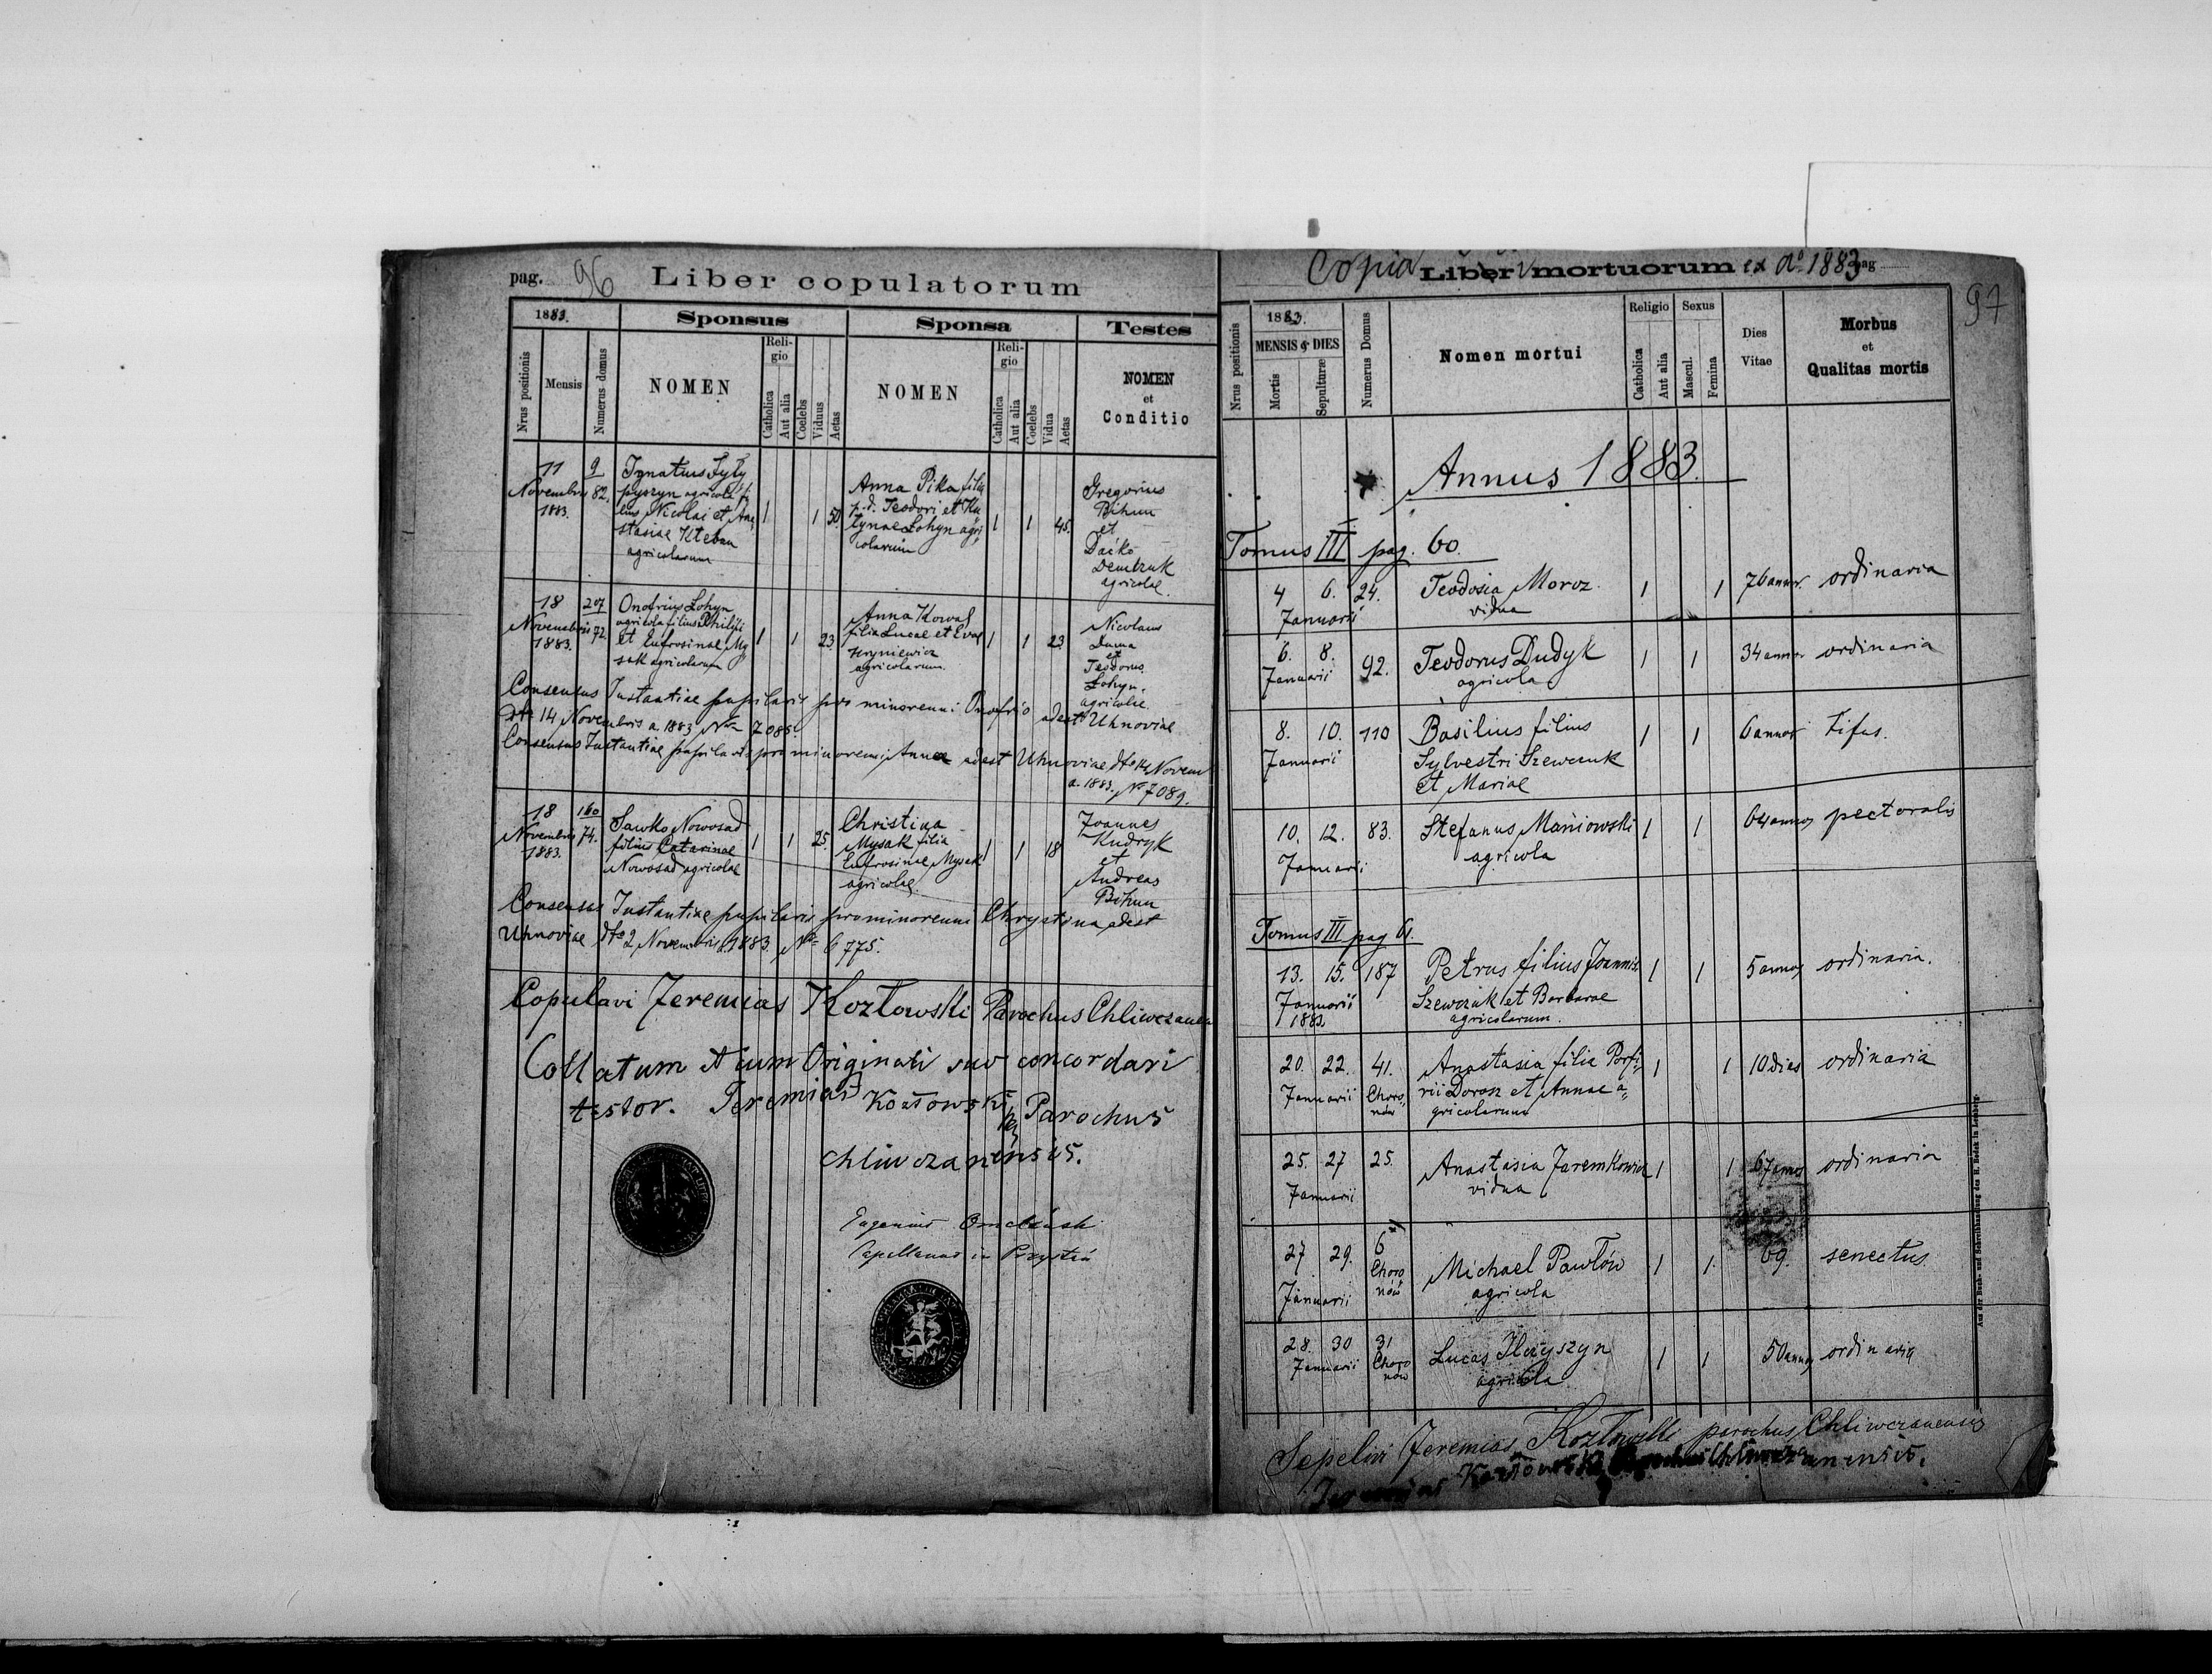 pag. 96 Liber copulatorum
1883. Sponsus Sponsa Testes
Nrus positionis Mensis Numerus domus NOMEN Religio Catholica Aut alia Coelebs Viduus Aetas NOMEN Religio Catholica Aut alia Coelebs Vidua Aetas NOMEN et Conditio
11 Novembris 1883.
9
82.
Ignatius
pyszyn agricola fi
lius Nicolai et Ana
stasiae
agricolarum
1 1 50.
Anna Pika filia
p.d. Teodori et Ka
tynae Lohyn agri
colarum
1 1 45.
Gregorius
Bihun
et
Dačko
Demczuk
agricolae.
18 Novembris 1883.
207
72.
Onofrius Lohyn
agricola filius Philippi
et Eufrosinae My
sak agricolarum
1 1 23.
Anna Kowal
filia Lucae et Evae
Hryniewicz
agricolarum.
1 1 23
Nicolaus
Duma
et
Teodorus
Lohyn.
agricolae.
Consensus Instantiae pupilaris pro minorenni Onofrio adest Uhnoviae
dto 14 Novembris a. 1883 Nro 7088.
Consensus Instantiae pupilaris pro minorenni Anna adest Uhnoviae dto 14 Novem
a. 1883. No 7089.
18 Novembris 1883.
160
74.
Sawko Nowosad
filius Catarinae
Nowosad agricolae
1 1 25.
Christina
Mysak filia
Eufrosinae Mysak
agricolae.
1 1 18
Joannes
Kudryk
et
Andreas
Bihun
Consensus Instantiae pupilaris pro minorenni Chrystina adest
Uhnoviae dto 2 Novembris 1883. No 6775.
Copulavi Jeremias Kozłowski Parochus Chliwczanen
Collatum cum Originali suo concordari
testor. Jeremias Kozłowski Parochus
chliwczanensis.
Eugenius
Capellanus in
Copia Liber mortuorum ex ao 1883 pag
97
Nrus positionis 1883. MENSIS & DIES Mortis Sepulturae Numerus Domus Nomen mortui Religio Catholica Aut alia Sexus Mascul. Femina Dies Vitae Morbus et Qualitas mortis
Annus 1883.
Tomus III pag. 60.
4 6. 24. Teodosia Moroz 1 1 76 annor. ordinaria
Januarii vidua
6. 8. 92. Teodorus Dudyk 1 1 34 annor ordinaria
Januarii agricola
8. 10. 110 Basilius filius 1 1 6 annor tifus.
Januarii Sylvestri Szewczuk
et Mariae
10. 12. 83. Stefanus Maniowski 1 1 64 annor pectoralis
Januarii agricola
Tomus III pag 61.
13. 15. 187 Petrus filius Joannis 1 1 5 annor ordinaria.
Januarii Szewczuk et Barbarae
1883 agricolarum.
20. 22. 41. Anastasia filia Porfi= 1 1 10 dies ordinaria
Januarii Choro= rii Doroz et Annae a=
nów gricolarum
25. 27 25. Anastasia Jaremkowicz 1 1 67 annor ordinaria
Januarii vidua
27 29. 6 Michael Pawłów 1 1. 69. senectus.
Januarii Choro
nów agricola
28. 30 31 Lucas Ilczyszyn 1 1 50 annor ordinaria
Januarii Choro
nów agricola
Sepelivi Jeremias Kozłowski parochus Chliwczanensis
Jeremias Kozłowski Parochus Chliwczanensis.
Aus der Buch- und Schreibhandlung des H. Bodek in Lemberg.